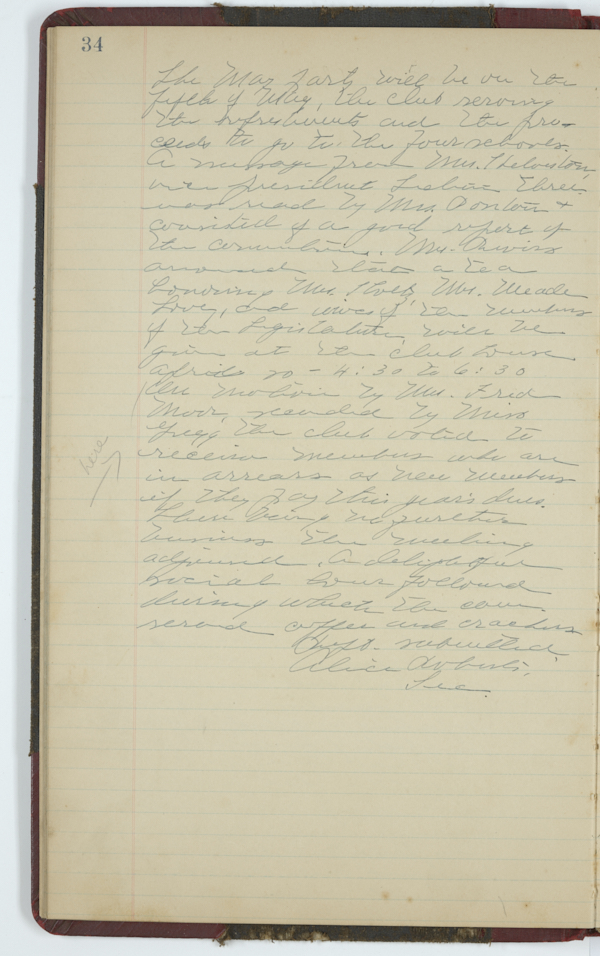 34
The May Party will be on the
fifth of May, the club serving
the refreshments and the pro-
ceeds to go to the four schools.
A message from Mrs.
vice president three
was read by Mrs. &
consisted of a good report of
the committee. Mrs.
announced that a tea
honoring Mrs. Mrs. Meade
Love, and wives of the members
of the Legislature, will be
given at the club house
April 20 - 4:30 to 6:30
On motion by Mrs. Fred
Moor, seconded by Miss
Gregg the club voted to
here
receive members who are
in arrears as new members
if they pay this year's dues.
There being no further
business the meeting
adjourned. A delightful
social hour followed
during which the com.
served coffee and crackers
Resp. submitted
Alice Roberts,
Sec.